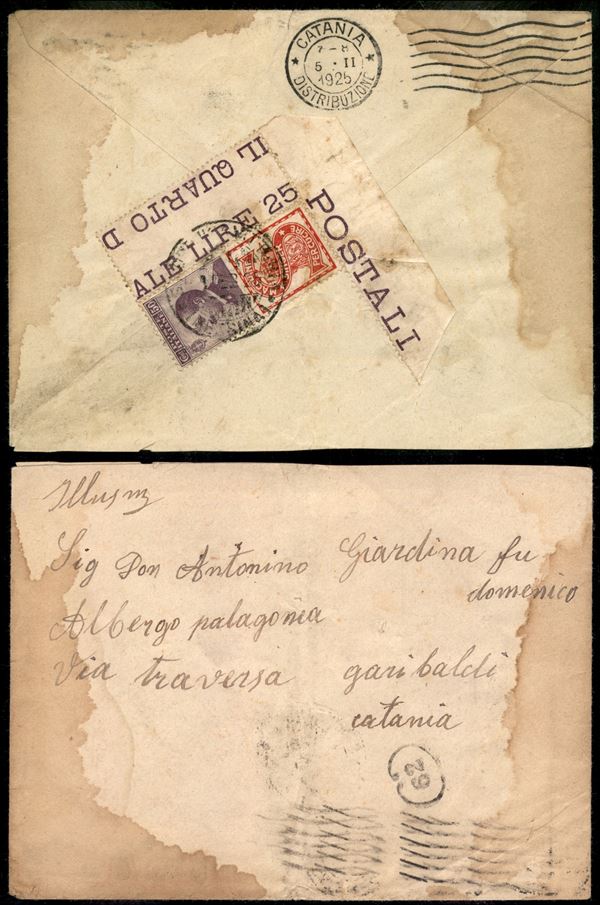 CATANIA
7-8
5 · II
1925
DISTRIBUZIONE
IL QUARTO D
ALE LIRE 25
POSTALI
PER CUCIRE
Illusm
Sig Don Antonino Giardina fu
domenico
Albergo palagonia
Via traversa garibaldi
catania
29